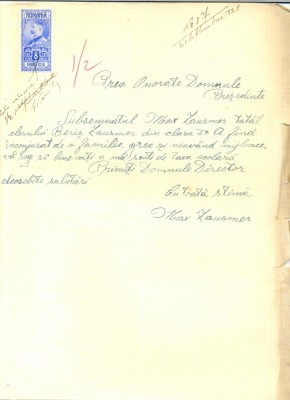 ROMÂNIA
1/2
Prea Onorate Domnule
Prezidente
Subsemnatul Max Zausmer tatăl
elevului Beriș Zausmer din clasa A fiind
înconjurat de o familie, grea și neavând mijloace,
vă rog să bine voiți a mă scuti de taxa școlară
Primiți Domnule Director
deosebite salutări
Cu toată stima
Max Zausmer